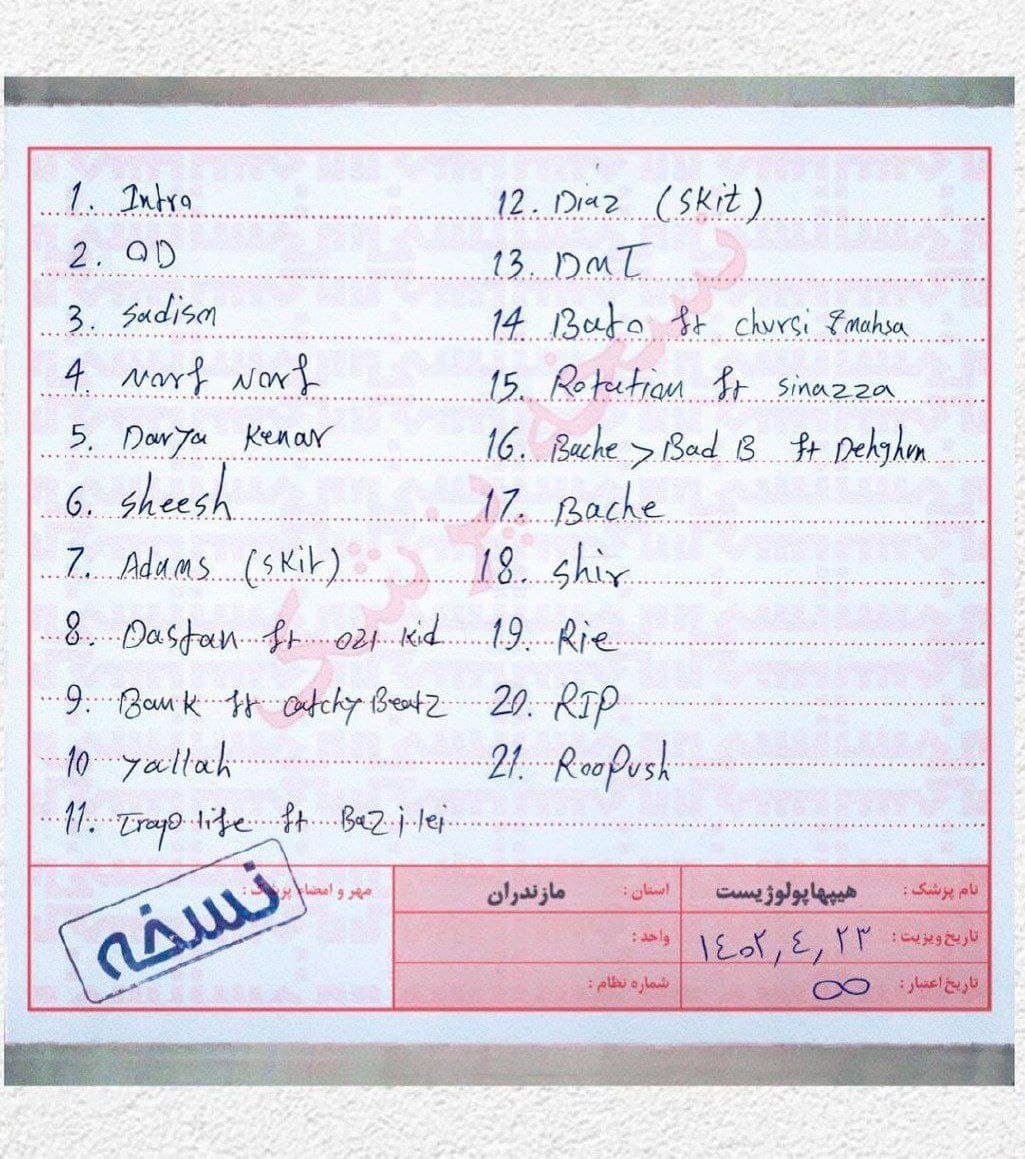 1. Intro
2. QD
3. Sadism
4. Narf Narf
5. Darya Kenar
6. Sheesh
7. Adams (Skit)
8. Dastan ft ozi kid
9. Bank ft catchy Beatz
10 Yallah
11. Trap life ft Bazilei
12. Diaz (Skit)
13. DMT
14. Bafo ft chursi & mahsa
15. Rotation ft sinazza
16. Bache > Bad B ft Dehghun
17. Bache
18. Shir
19. Rie
20. RIP
21. RooPush
نام پزشک : هیپهاپولوژیست
استان : مازندران
مهر و امضاء پزشک :
تاریخ ویزیت : ۱۴۰۲,۴,۲۳
واحد :
تاریخ اعتبار : ∞
شماره نظام :
نسخه